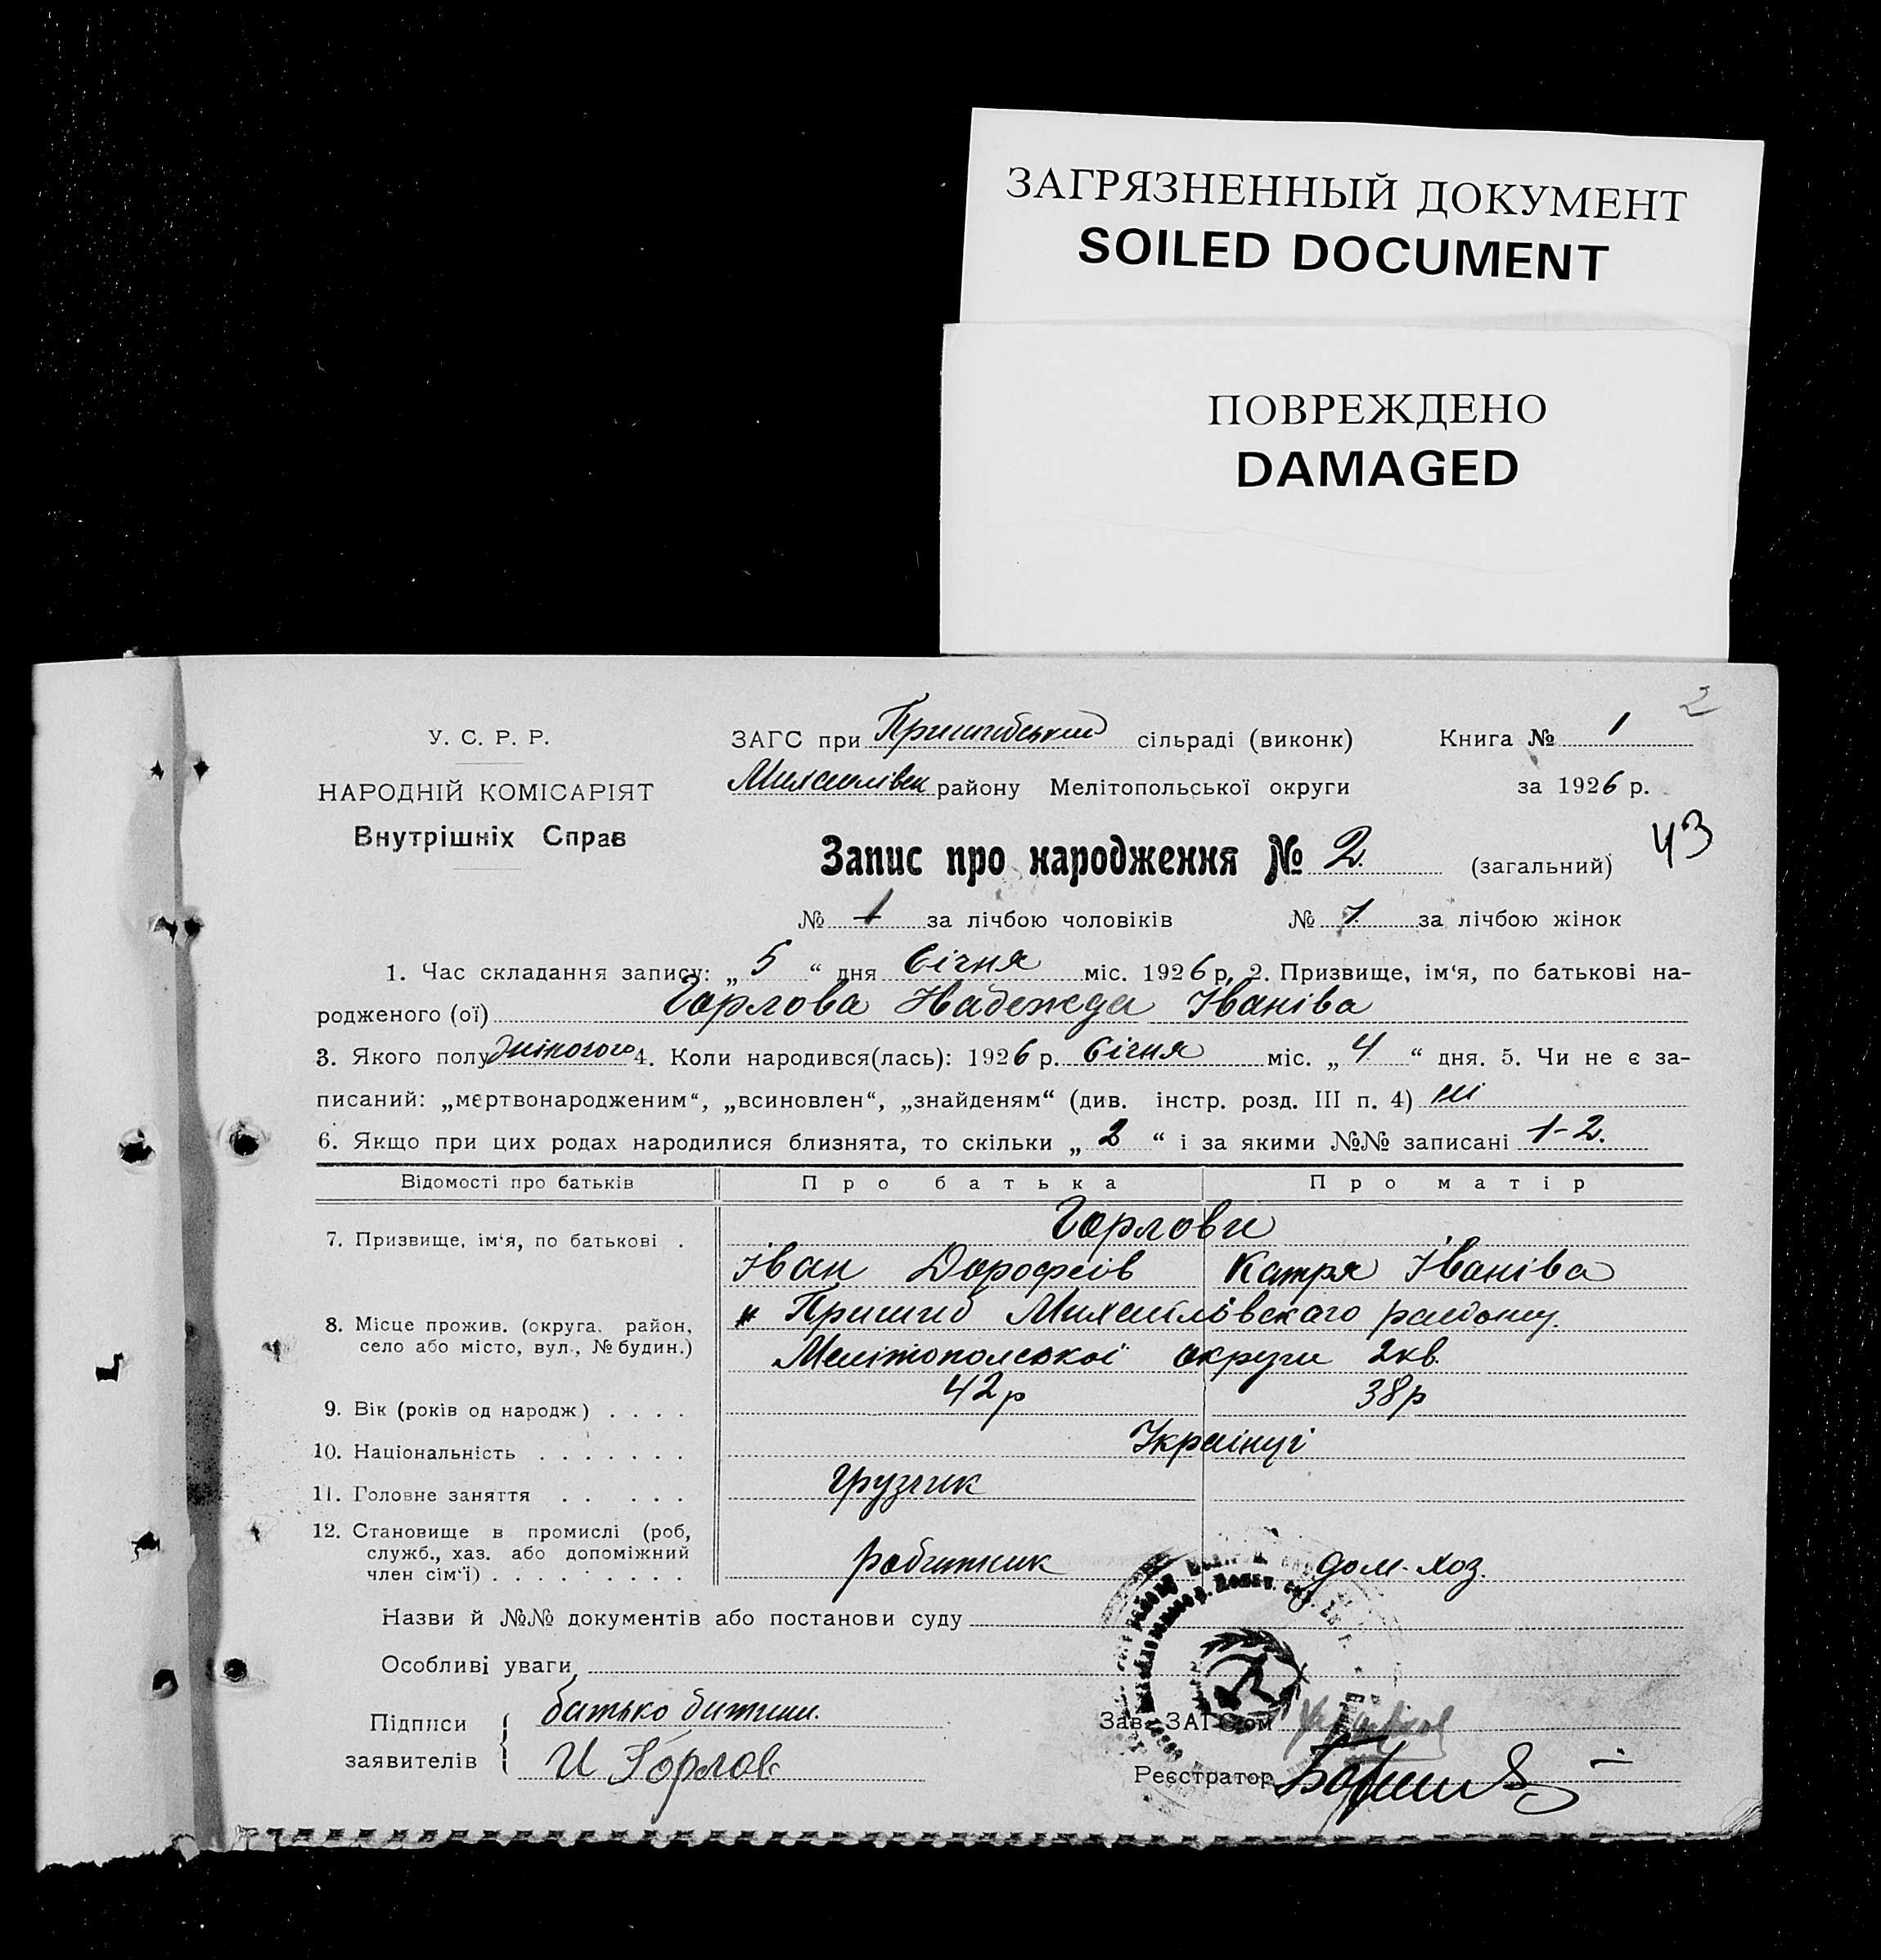 ЗАГРЯЗНЕННЫЙ ДОКУМЕНТ
SOILED DOCUMENT
ПОВРЕЖДЕНО
DAMAGED
2
У. С. Р. Р.
НАРОДНІЙ КОМІСАРІЯТ
Внутрішніх Справ
ЗАГС при Пришибський сільраді (виконк) Книга № 1
Михайлівськ району Мелітопольської округи за 1926 р.
43
Запис про народження № 2. (загальний)
№ 1 за лічбою чоловіків № 1 за лічбою жінок
1. Час складання запису: „ 5 “ дня Січня міс. 1926 р. 2. Призвище, ім‘я, по батькові на-
родженого (ої) Горлова Надежда Іванівa
3. Якого полу жіночого 4. Коли народився(лась): 1926 р. Січня міс. „ 4 “ дня. 5. Чи не є за-
писаний: „мертвонародженим“, „всиновлен“, „знайденям“ (див. інстр. розд. III п. 4) ні
6. Якщо при цих родах народилися близнята, то скільки „ 2 “ і за якими №№ записані 1-2.
Відомості про батьків Про батька Про матір
7. Призвище, ім‘я, по батькові . Горлови
Іван Дорофеів Катря Іваніва
8. Місце прожив. (округа, район, село або місто, вул., № будин.) Пришиб Михайлівскаго району.
Мелітопольської округи 2кв.
9. Вік (років од народж.) . . . . 42р 38р
10. Національність . . . . . . . Українці
11. Головне заняття . . . . . грузчик
12. Становище в промислі (роб, служб., хаз. або допоміжний член сім‘ї) . . . . . . . . . робитник дом-хоз.
Назви й №№ документів або постанови суду
Особливі уваги
Підписи заявителів батько дитини.
И Горлов
Зав. ЗАГСом
Реєстратор